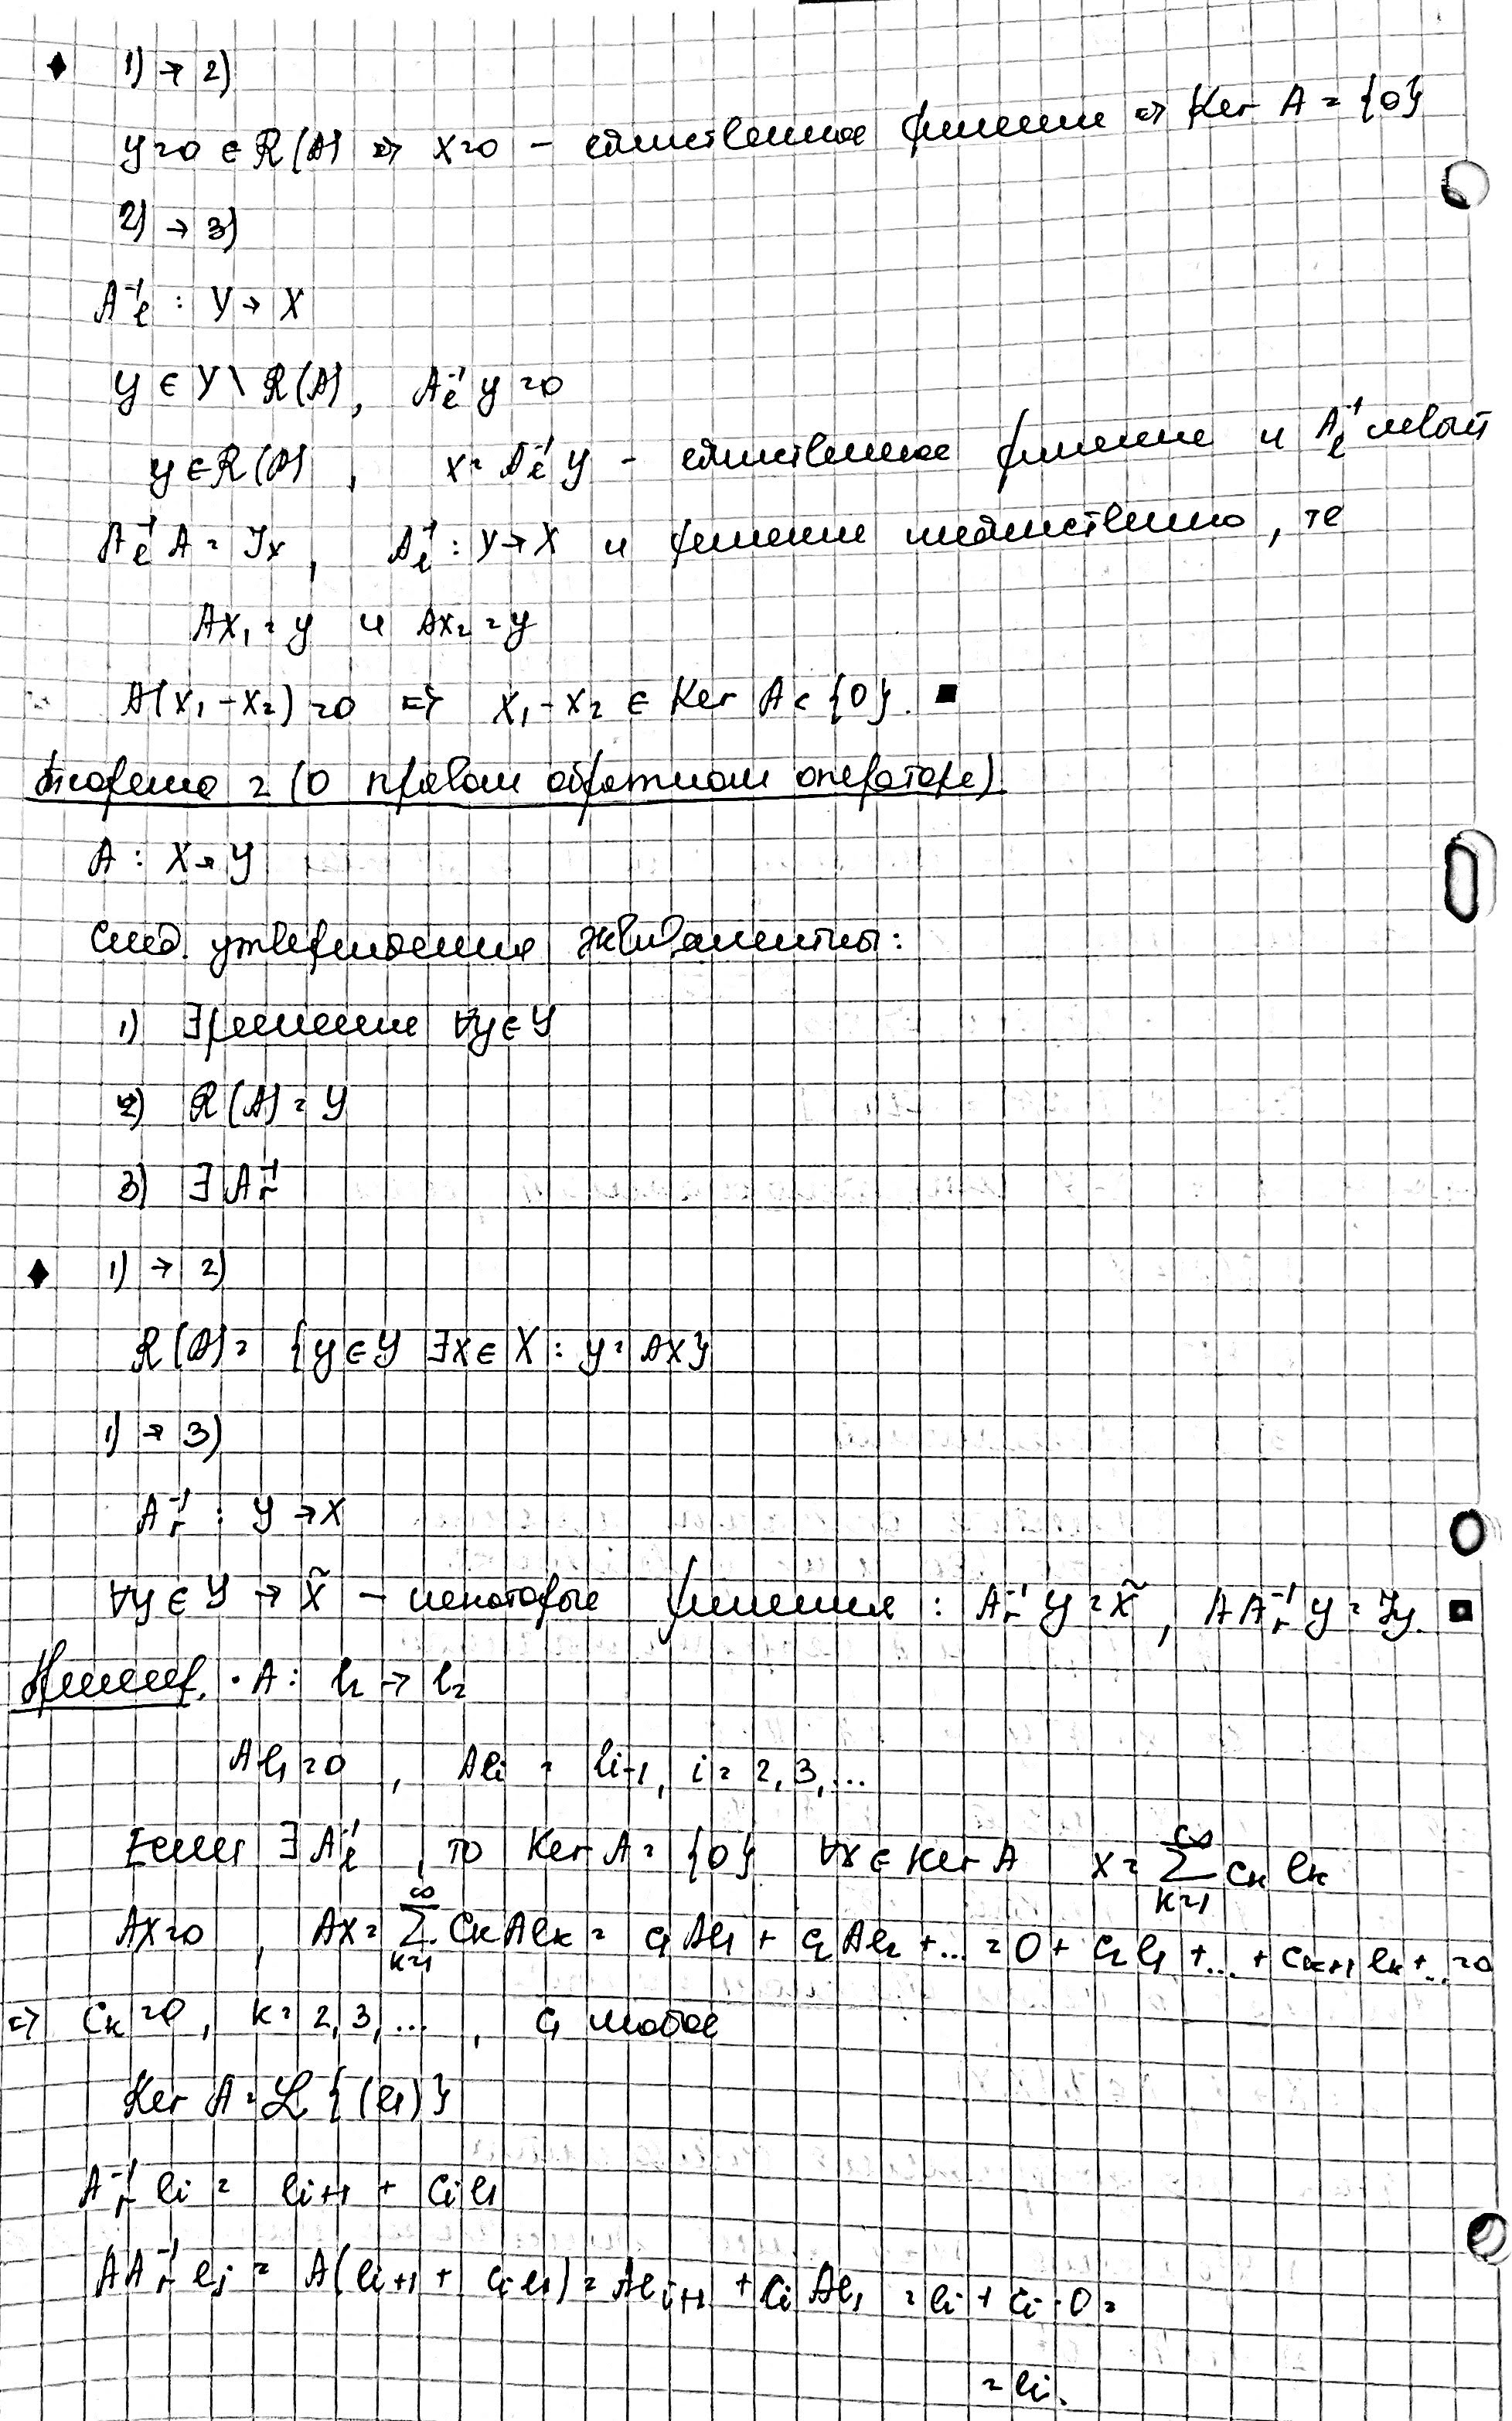 ♦ 1) → 2)
y=0 ∈ R(A) ⇒ x=0 – единственное решение ⇒ Ker A = {0}
2) → 3)
A_l^{-1} : Y → X
y ∈ Y \ R(A), A_l^{-1} y = 0
y ∈ R(A), x = A_l^{-1} y – единственное решение и A_l^{-1} левый
A_l^{-1} A = I_x, A_l^{-1} : Y → X и решение неединственно, те
Ax_1 = y и Ax_2 = y
A(x_1 - x_2) = 0 ⇒ x_1 - x_2 ∈ Ker A = {0}. ■
Теорема 2 (О правом обратном операторе)
A : X → Y
След. утверждения эквивалентны:
1) ∃ решение ∀y ∈ Y
2) R(A) = Y
3) ∃ A_r^{-1}
♦ 1) → 2)
R(A) = {y ∈ Y ∃x ∈ X : y = Ax}
1) → 3)
A_r^{-1} : Y → X
∀y ∈ Y → x̃ – некоторые решения : A_r^{-1} y = x̃, A A_r^{-1} y = I_y. ■
Пример. • A : l_2 → l_2
Ae_1 = 0, Ae_i = e_{i-1}, i = 2, 3, ...
Если ∃ A_l^{-1}, то Ker A = {0} ∀x ∈ Ker A x = ∑_{k=1}^{∞} c_k e_k
Ax = 0, Ax = ∑_{k=1}^{∞} c_k Ae_k = c_1 Ae_1 + c_2 Ae_2 + ... = 0 + c_2 e_1 + ... + c_{k+1} e_k + ... = 0
⇒ c_k = 0, k = 2, 3, ..., c_1 любое
Ker A = L {(e_1)}
A_r^{-1} e_i = e_{i+1} + c_i e_1
A A_r^{-1} e_j = A(e_{i+1} + c_i e_1) = Ae_{i+1} + c_i Ae_1 = e_i + c_i · 0 =
= e_i.